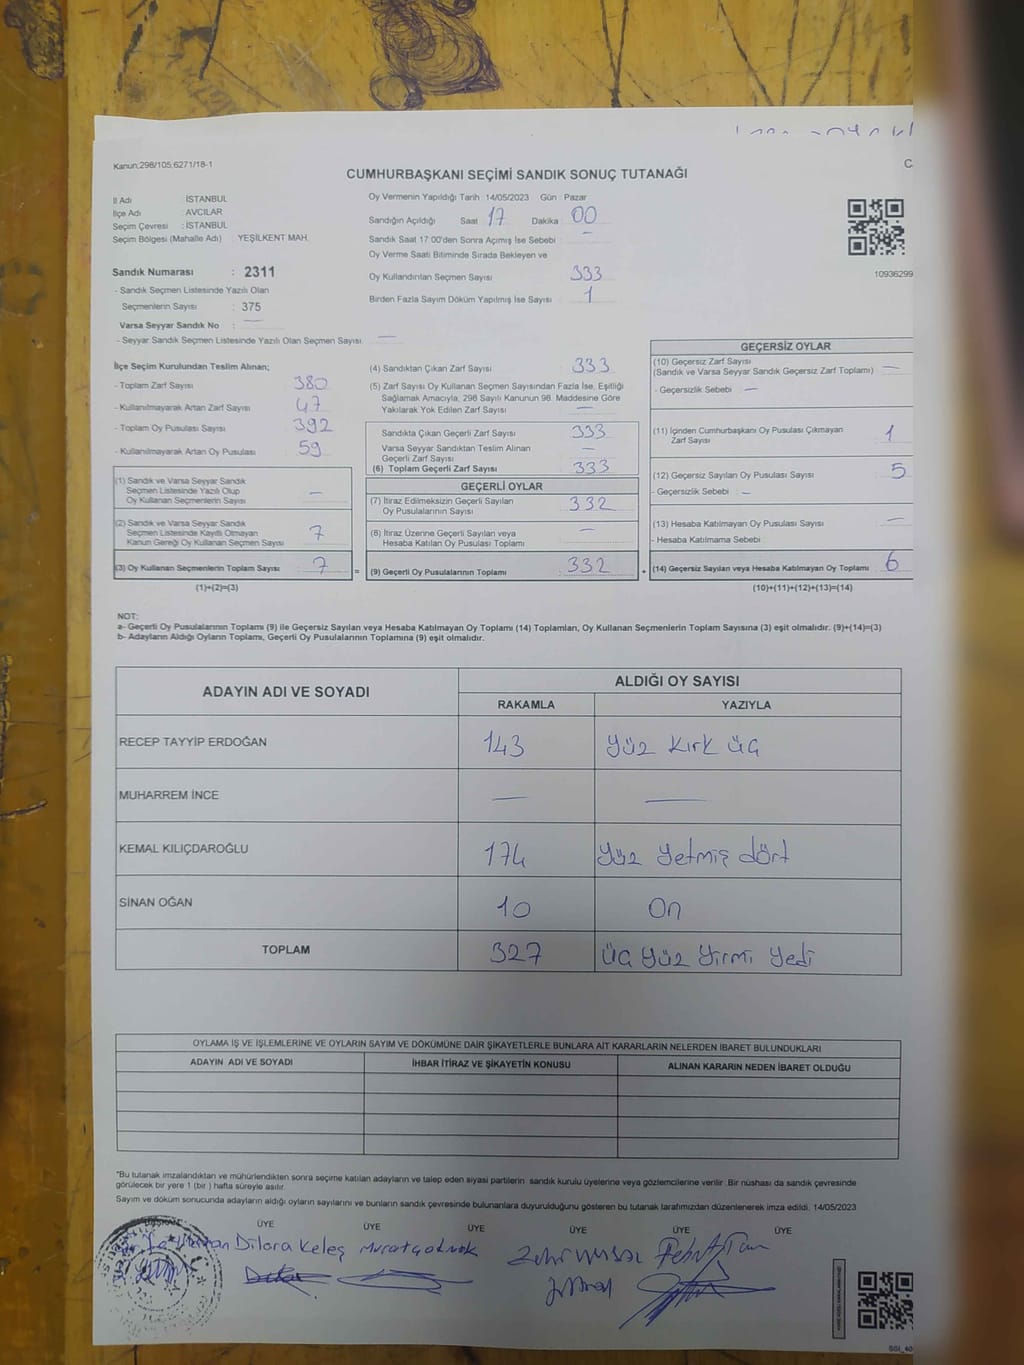 Kanun:298/105;6271/18-1
CUMHURBAŞKANI SEÇİMİ SANDIK SONUÇ TUTANAĞI
İl Adı : İSTANBUL
İlçe Adı : AVCILAR
Seçim Çevresi : İSTANBUL
Seçim Bölgesi (Mahalle Adı) YEŞİLKENT MAH.
Sandık Numarası : 2311
- Sandık Seçmen Listesinde Yazılı Olan
Seçmenlerin Sayısı : 375
Varsa Seyyar Sandık No : —
- Seyyar Sandık Seçmen Listesinde Yazılı Olan Seçmen Sayısı. —
Oy Vermenin Yapıldığı Tarih 14/05/2023 Gün : Pazar
Sandığın Açıldığı Saat 17 Dakika 00
Sandık Saat 17:00'den Sonra Açılmış İse Sebebi : —
Oy Verme Saati Bitiminde Sırada Bekleyen ve
Oy Kullandırılan Seçmen Sayısı 333
Birden Fazla Sayım Döküm Yapılmış İse Sayısı 1
10936299
İlçe Seçim Kurulundan Teslim Alınan;
- Toplam Zarf Sayısı : 380
- Kullanılmayarak Artan Zarf Sayısı : 47
- Toplam Oy Pusulası Sayısı : 392
- Kullanılmayarak Artan Oy Pusulası : 59
(1) Sandık ve Varsa Seyyar Sandık
Seçmen Listesinde Yazılı Olup
Oy Kullanan Seçmenlerin Sayısı : —
(2) Sandık ve Varsa Seyyar Sandık
Seçmen Listesinde Kayıtlı Olmayan
Kanun Gereği Oy Kullanan Seçmen Sayısı : 7
(3) Oy Kullanan Seçmenlerin Toplam Sayısı : 7
(1)+(2)=(3)
(4) Sandıktan Çıkan Zarf Sayısı : 333
(5) Zarf Sayısı Oy Kullanan Seçmen Sayısından Fazla İse, Eşitliği
Sağlamak Amacıyla, 298 Sayılı Kanunun 98. Maddesine Göre
Yakılarak Yok Edilen Zarf Sayısı : —
Sandıkta Çıkan Geçerli Zarf Sayısı : 333
Varsa Seyyar Sandıktan Teslim Alınan
Geçerli Zarf Sayısı : —
(6) Toplam Geçerli Zarf Sayısı : 333
GEÇERLİ OYLAR
(7) İtiraz Edilmeksizin Geçerli Sayılan
Oy Pusulalarının Sayısı : 332
(8) İtiraz Üzerine Geçerli Sayılan veya
Hesaba Katılan Oy Pusulası Toplamı : —
= (9) Geçerli Oy Pusulalarının Toplamı : 332 +
GEÇERSİZ OYLAR
(10) Geçersiz Zarf Sayısı
(Sandık ve Varsa Seyyar Sandık Geçersiz Zarf Toplamı) : —
- Geçersizlik Sebebi : —
(11) İçinden Cumhurbaşkanı Oy Pusulası Çıkmayan
Zarf Sayısı : 1
(12) Geçersiz Sayılan Oy Pusulası Sayısı : 5
- Geçersizlik Sebebi : —
(13) Hesaba Katılmayan Oy Pusulası Sayısı : —
- Hesaba Katılmama Sebebi :
(14) Geçersiz Sayılan veya Hesaba Katılmayan Oy Toplamı : 6
(10)+(11)+(12)+(13)=(14)
NOT:
a- Geçerli Oy Pusulalarının Toplamı (9) ile Geçersiz Sayılan veya Hesaba Katılmayan Oy Toplamı (14) Toplamları, Oy Kullanan Seçmenlerin Toplam Sayısına (3) eşit olmalıdır. (9)+(14)=(3)
b- Adayların Aldığı Oyların Toplamı, Geçerli Oy Pusulalarının Toplamına (9) eşit olmalıdır.
ADAYIN ADI VE SOYADI ALDIĞI OY SAYISI
RAKAMLA YAZIYLA
RECEP TAYYİP ERDOĞAN 143 Yüz Kırk üç
MUHARREM İNCE — —
KEMAL KILIÇDAROĞLU 174 Yüz Yetmiş dört
SİNAN OĞAN 10 On
TOPLAM 327 üç Yüz Yirmi Yedi
OYLAMA İŞ VE İŞLEMLERİNE VE OYLARIN SAYIM VE DÖKÜMÜNE DAİR ŞİKAYETLERLE BUNLARA AİT KARARLARIN NELERDEN İBARET BULUNDUKLARI
ADAYIN ADI VE SOYADI İHBAR İTİRAZ VE ŞİKAYETİN KONUSU ALINAN KARARIN NEDEN İBARET OLDUĞU
*Bu tutanak imzalandıktan ve mühürlendikten sonra seçime katılan adayların ve talep eden siyasi partilerin sandık kurulu üyelerine veya gözlemcilerine verilir. Bir nüshası da sandık çevresinde
görülecek bir yere 1 (bir ) hafta süreyle asılır.
Sayım ve döküm sonucunda adayların aldığı oyların sayılarını ve bunların sandık çevresinde bulunanlara duyurulduğunu gösteren bu tutanak tarafımızdan düzenlenerek imza edildi. 14/05/2023
BAŞKAN ÜYE ÜYE ÜYE ÜYE ÜYE ÜYE
Dilara Keleş Murat